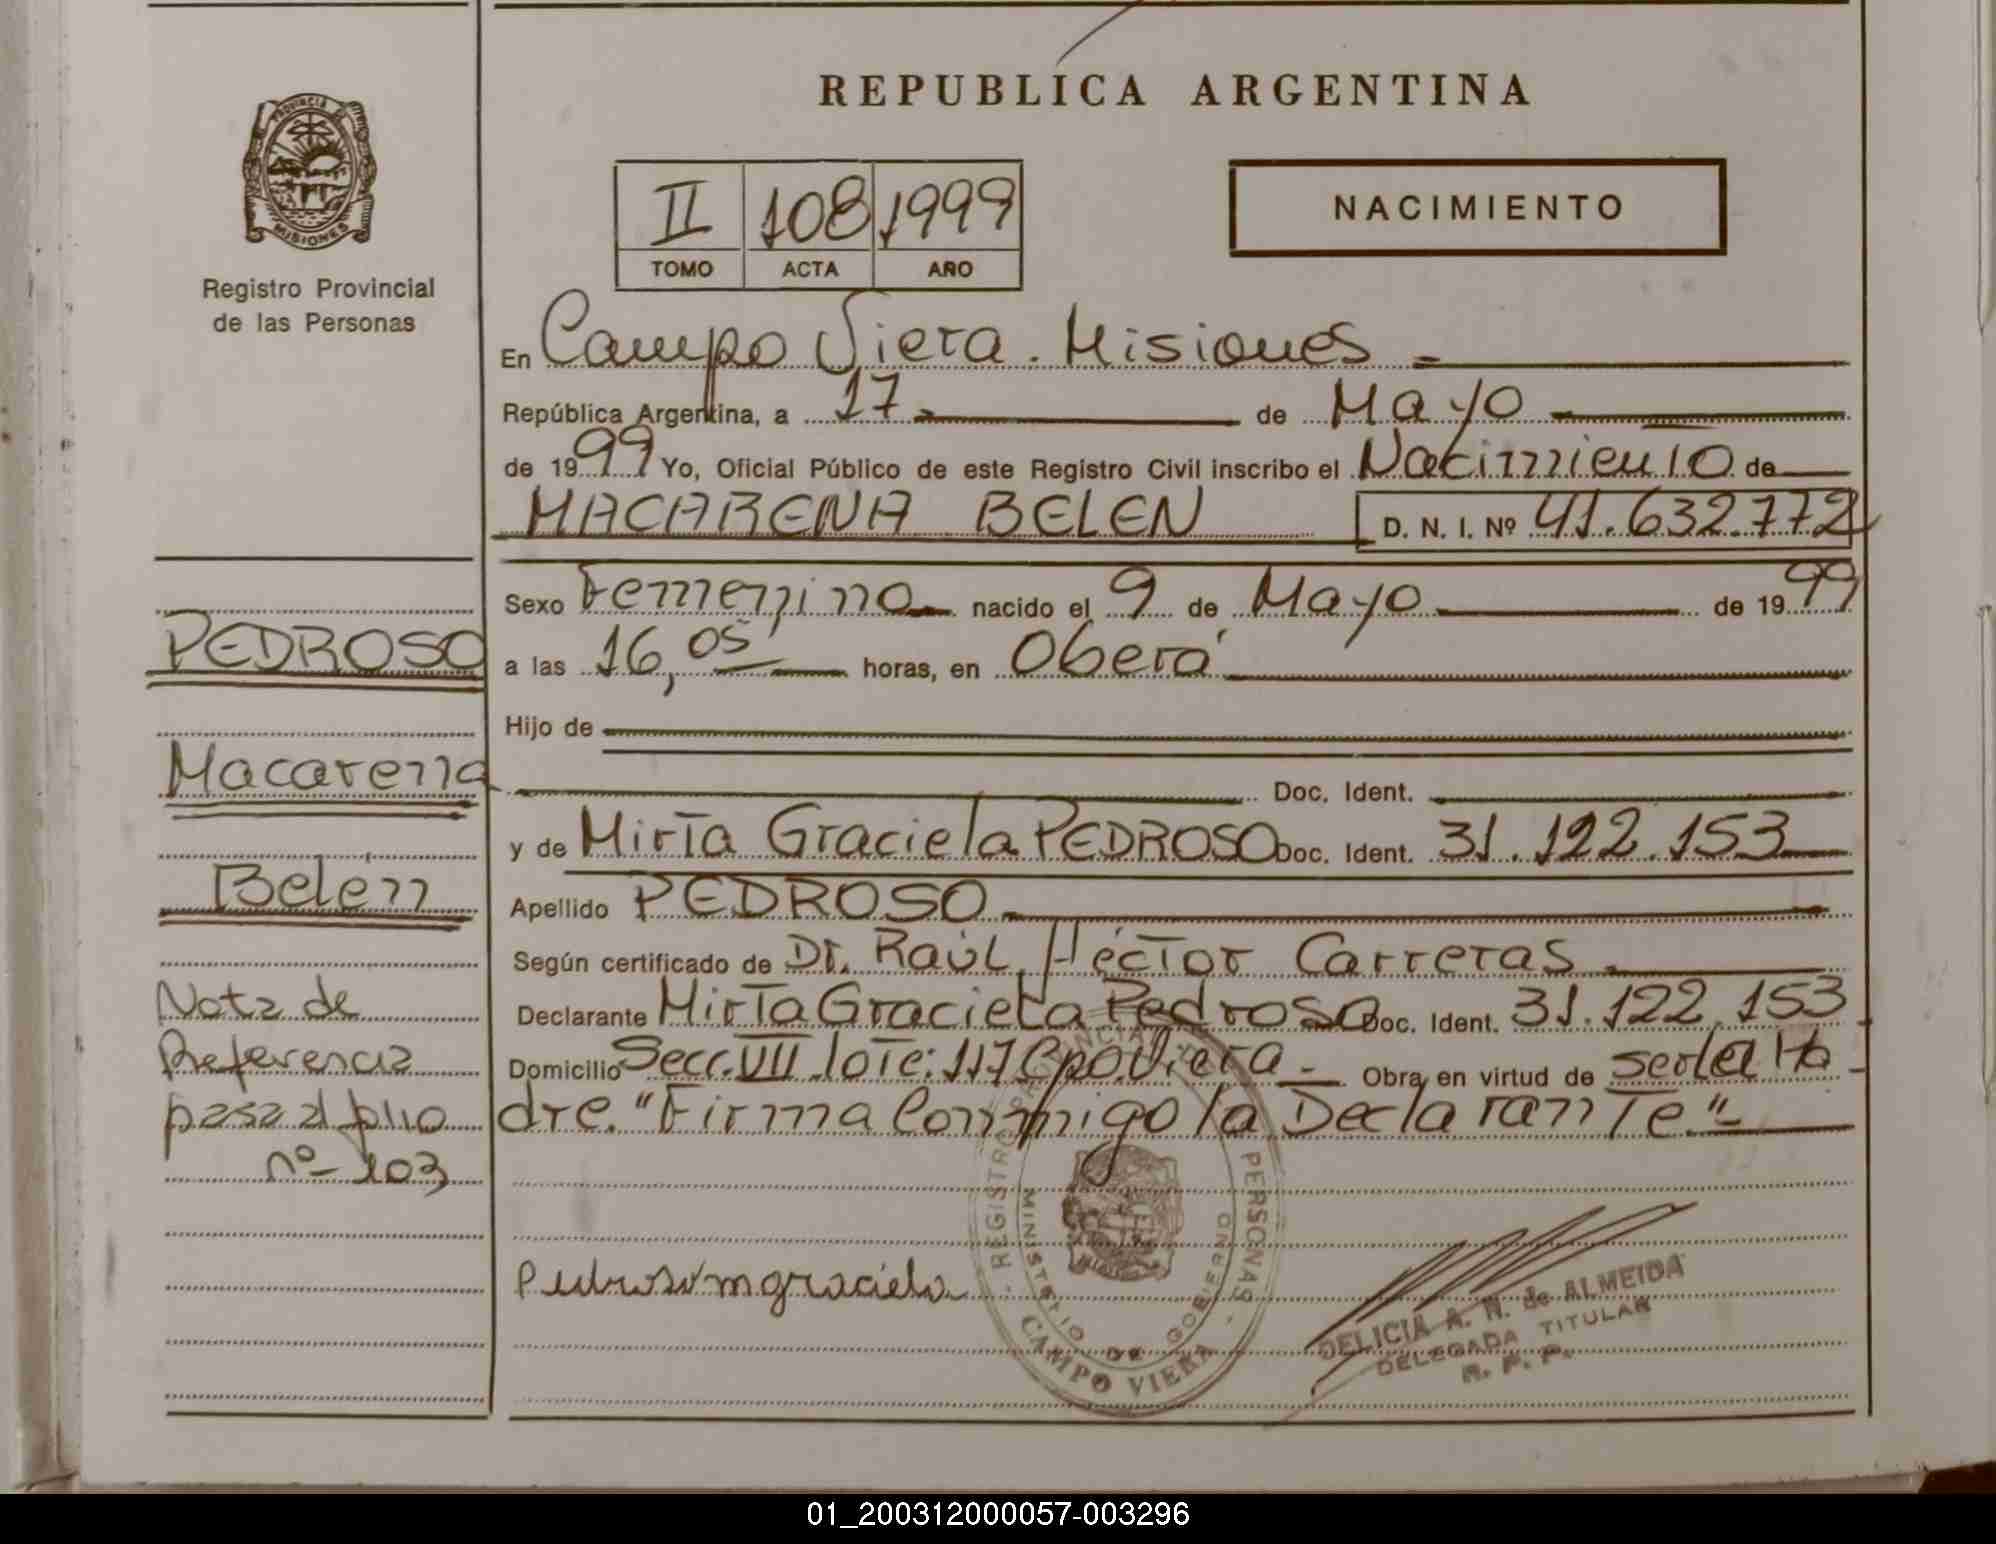 REPUBLICA ARGENTINA
PROVINCIA
MISIONES
Registro Provincial
de las Personas
II 108 1999
TOMO ACTA AÑO
NACIMIENTO
En Campo Viera. Misiones
República Argentina, a 17 de Mayo
de 1999 Yo, Oficial Público de este Registro Civil inscribo el Nacimiento de
MACARENA BELEN D. N. I. Nº 41.632.772
Sexo Femenino nacido el 9 de Mayo de 1999
a las 16,05 horas, en Oberá
Hijo de
Doc. Ident.
y de Mirta Graciela PEDROSO Doc. Ident. 31.122.153
Apellido PEDROSO
Según certificado de Dr. Raúl Héctor Carreras.
Declarante Mirta Graciela Pedroso Doc. Ident. 31.122.153
Domicilio Secc. VII lote: 117 Cpo. Viera. Obra en virtud de ser la Ma-
dre. "Firma Conmigo la Declarante"
PEDROSO
Macarena
Belén
Nota de
Referencia
pasa al folio
nº 103
Pedroso m graciela
REGISTRO PROVINCIAL PERSONAS
MINISTERIO DE GOBIERNO
CAMPO VIERA
DELICIA A. N. de ALMEIDA
DELEGADA TITULAR
R. P. P.
01_200312000057-003296